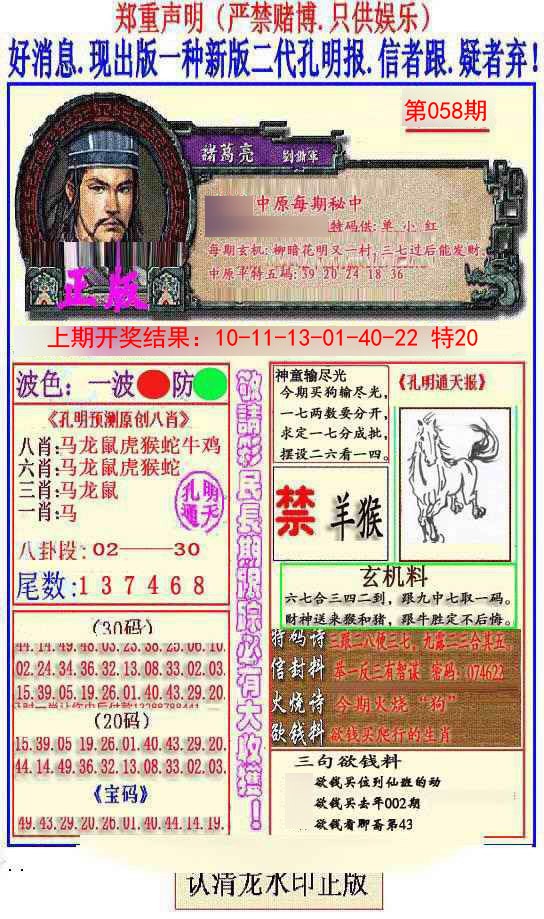 郑重声明（严禁赌博.只供娱乐）
好消息.现出版一种新版二代孔明报.信者跟.疑者弃!
第058期
諸葛亮
中原每期秘中
特码供:单 小 红
每期玄机:柳暗花明又一村,三七过后能发财.
中原平特五码:39 20 24 18 36
正版
上期开奖结果：10-11-13-01-40-22 特20
波色：一波 防
《孔明预测原创八肖》
八肖:马龙鼠虎猴蛇牛鸡
六肖:马龙鼠虎猴蛇
三肖:马龙鼠
一肖:马
孔明
通天
八卦段:02——30
尾数:137468
敬請彩民長期跟踪必有大收獲！
神童输尽光
今期买狗输尽光,
一七两数要分开,
求定一七分成批,
摆设二六看一四。
《孔明通天报》
禁 羊猴
玄机料
六七合三四二到，跟九中七取一码。
财神送来猴和猪，跟牛胜定不后悔。
特码诗 三跟二八便三七，九露二二合其五。
信封料 举一反三有智谋 密码：074622
火烧诗 今期火烧“狗”
欲钱料 欲钱买爬行的生肖
(30码)
44.14.49.48.03.23.38.25.06.10
02.24.34.36.32.13.08.33.02.03
15.39.05.19.26.01.40.43.29.20
(20码)
15.39.05 19.26.01.40.43.29.20.
44.14.49.36.32.13.08.33.02.03.
《宝码》
49.43.29.20.26.01.40.44.14.19.
三句欲钱料
欲钱买位到仙班的动
欲钱买去年002期
欲钱看聊斋第43
认清龙水印正版